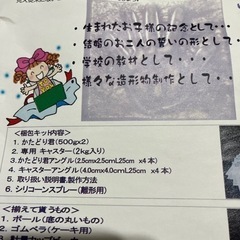 ・生まれたお子様の記念として・・・
・結婚のお二人の誓いの形として・・・
・学校の教材として・・・
・様々な造形物制作として・・・
<梱包キット内容>
1. かたどり君(500gx2)
2. 専用 キャスター(2kg入り)
3. かたどり君アングル(2.5cmx2.5cmL25cm x4本)
4. キャスターアングル(4.0cmx4.0cmL25cm x4本)
5. 取り扱い説明書,製作方法
6. シリコーンスプレー(離形用)
<揃えて貰うもの>
1. ボール(底の丸いもの)
2. ゴムベラ(ケーキ用)